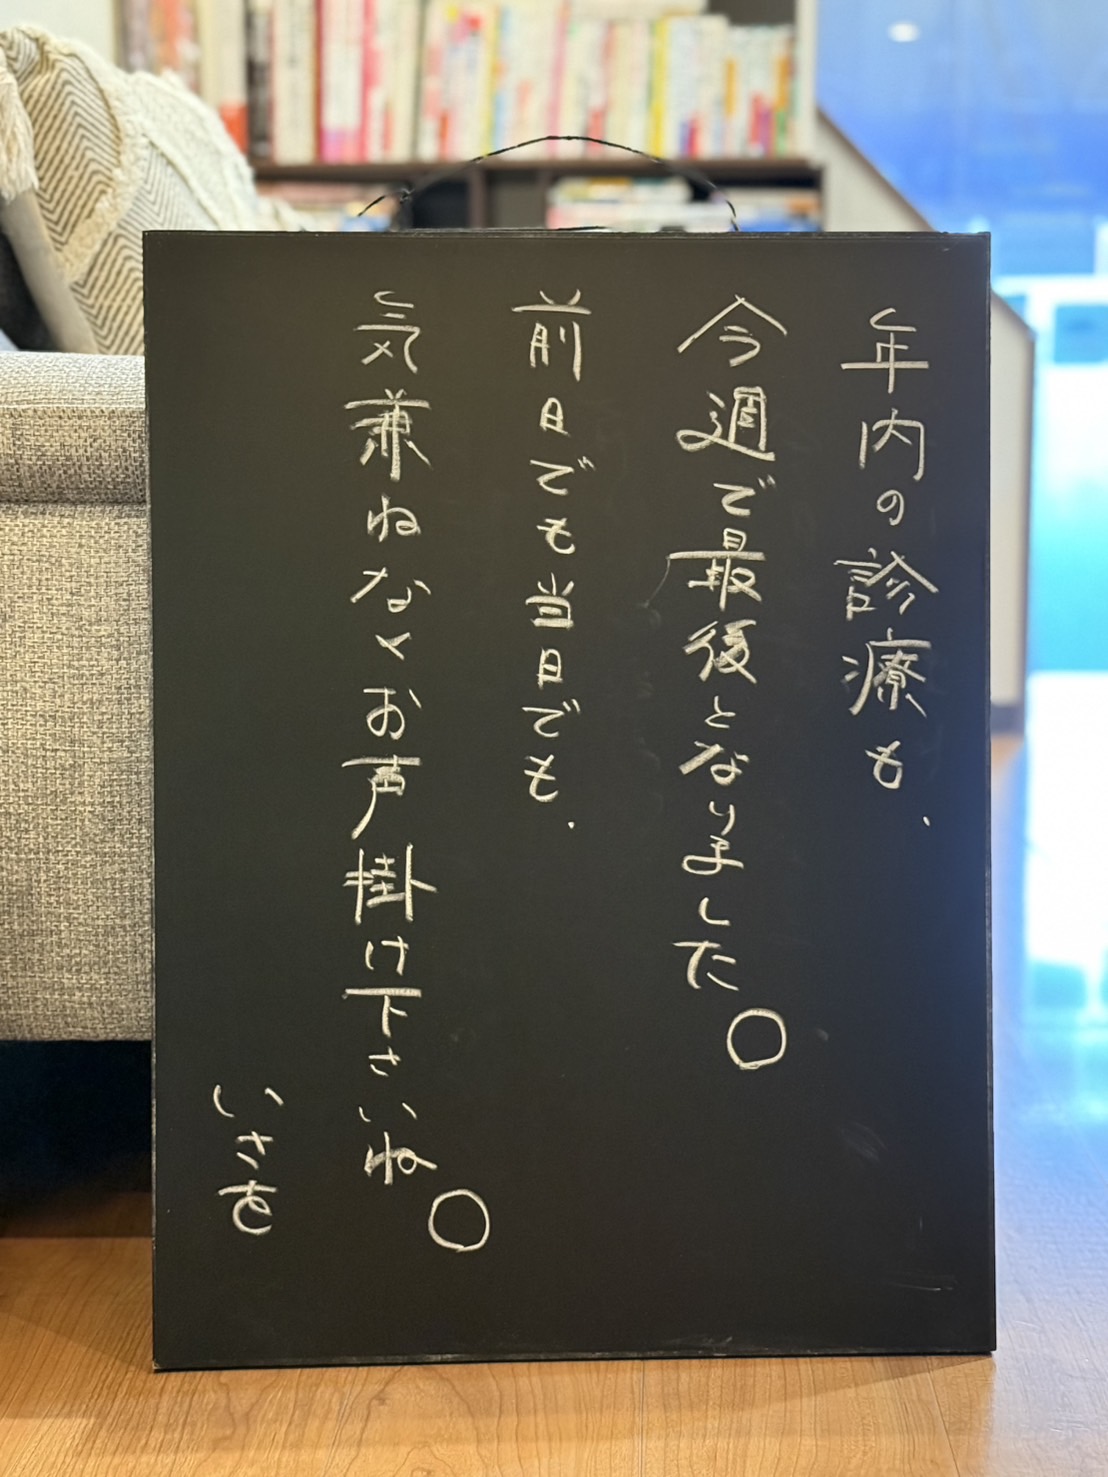 年内の診療も、
今週で最後となりました。
前日でも当日でも、
気兼ねなくお声掛け下さいね。
いさを